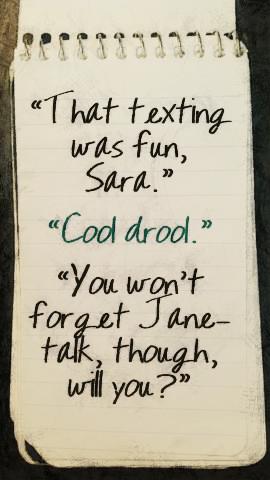 “That texting
was fun,
Sara.”
“Cool drool.”
“You won't
forget Jane-
talk, though,
will you?”